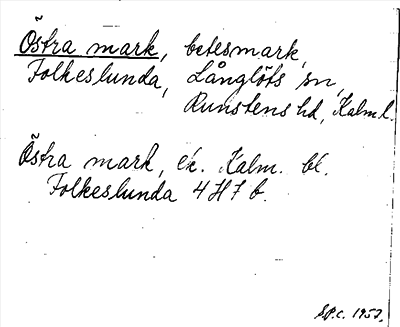 Östra mark, betesmark,
Folkeslunda, Långlöts sn,
Runstens hd, Kalm l.
Östra mark, ek. Kalm. bl.
Folkeslunda 4 H 7 b.
S.P.c. 1957.